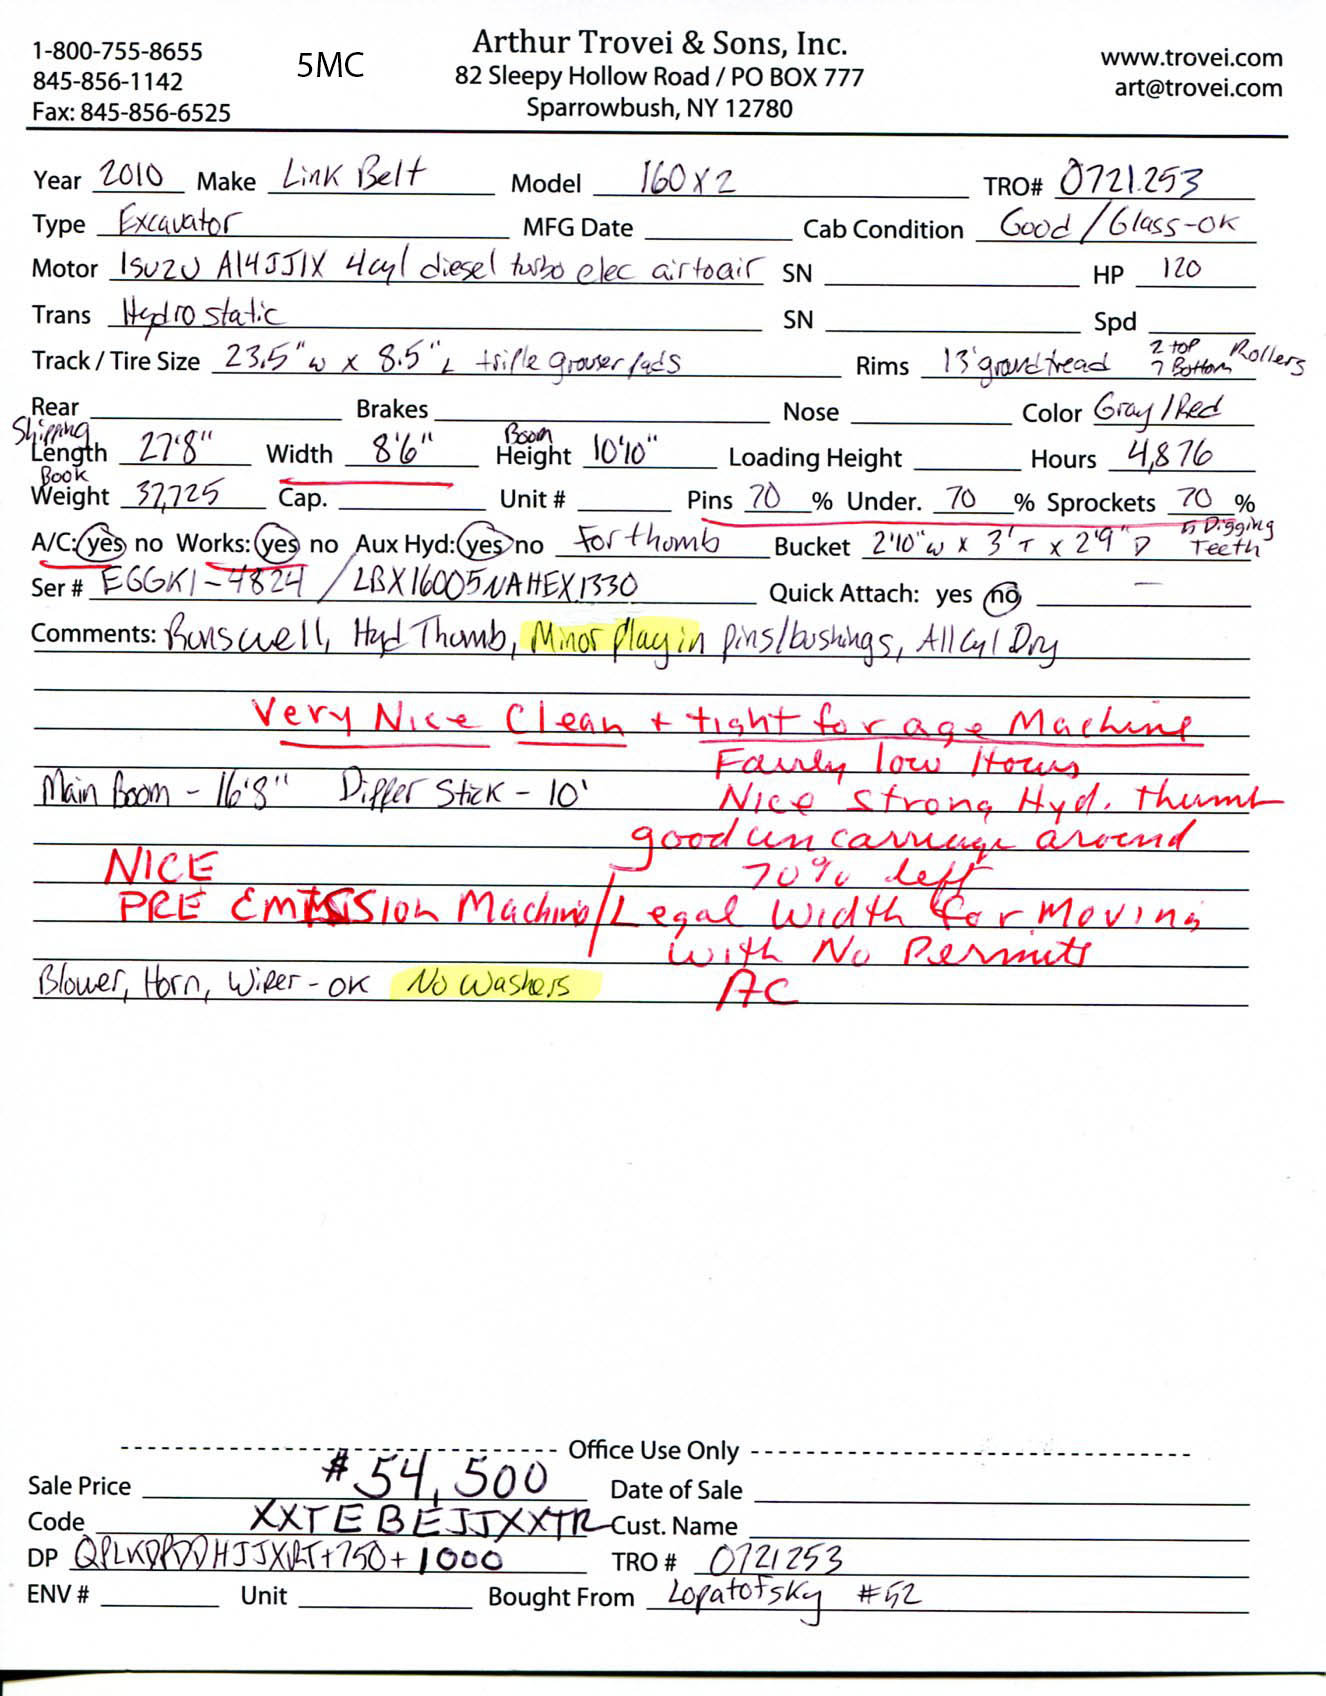 1-800-755-8655
845-856-1142
Fax: 845-856-6525
5MC
Arthur Trovei & Sons, Inc.
82 Sleepy Hollow Road / PO BOX 777
Sparrowbush, NY 12780
www.trovei.com
art@trovei.com
Year 2010 Make Link Belt Model 160X2 TRO# 0721.253
Type Excavator MFG Date Cab Condition Good / Glass-OK
Motor ISUZU AI4JJ1X 4cyl diesel turbo elec air to air SN HP 120
Trans Hydrostatic SN Spd
Track / Tire Size 23.5" W x 8.5" L triple grouser pads Rims 13' ground tread 2 top 7 Bottom Rollers
Rear Brakes Nose Color Gray / Red
Shipping Length 27'8" Width 8'6" Boom Height 10'10" Loading Height Hours 4,876
Book Weight 37,725 Cap. Unit # Pins 70 % Under. 70 % Sprockets 70 %
A/C: yes no Works: yes no Aux Hyd: yes no For thumb Bucket 2'10" W x 3' T x 2'9" D 5 Digging Teeth
Ser # EGGK1-4824 / LBX16005NAHEX1330 Quick Attach: yes no —
Comments: Runs well, Hyd Thumb, Minor play in pins/bushings, All Cyl Dry
Very Nice Clean + tight for age Machine
Fairly low Hours
Main Boom - 16'8" Dipper Stick - 10' Nice strong Hyd. thumb
good un carriage around
NICE 70% left
PRE EMISSION Machine / Legal Width for Moving
with No Permits
Blower, Horn, Wiper - OK No Washers AC
Office Use Only
Sale Price $54,500 Date of Sale
Code XXTEBEJJXXTR Cust. Name
DP +750+1000 TRO # 0721253
ENV # Unit Bought From Lopatofsky #52